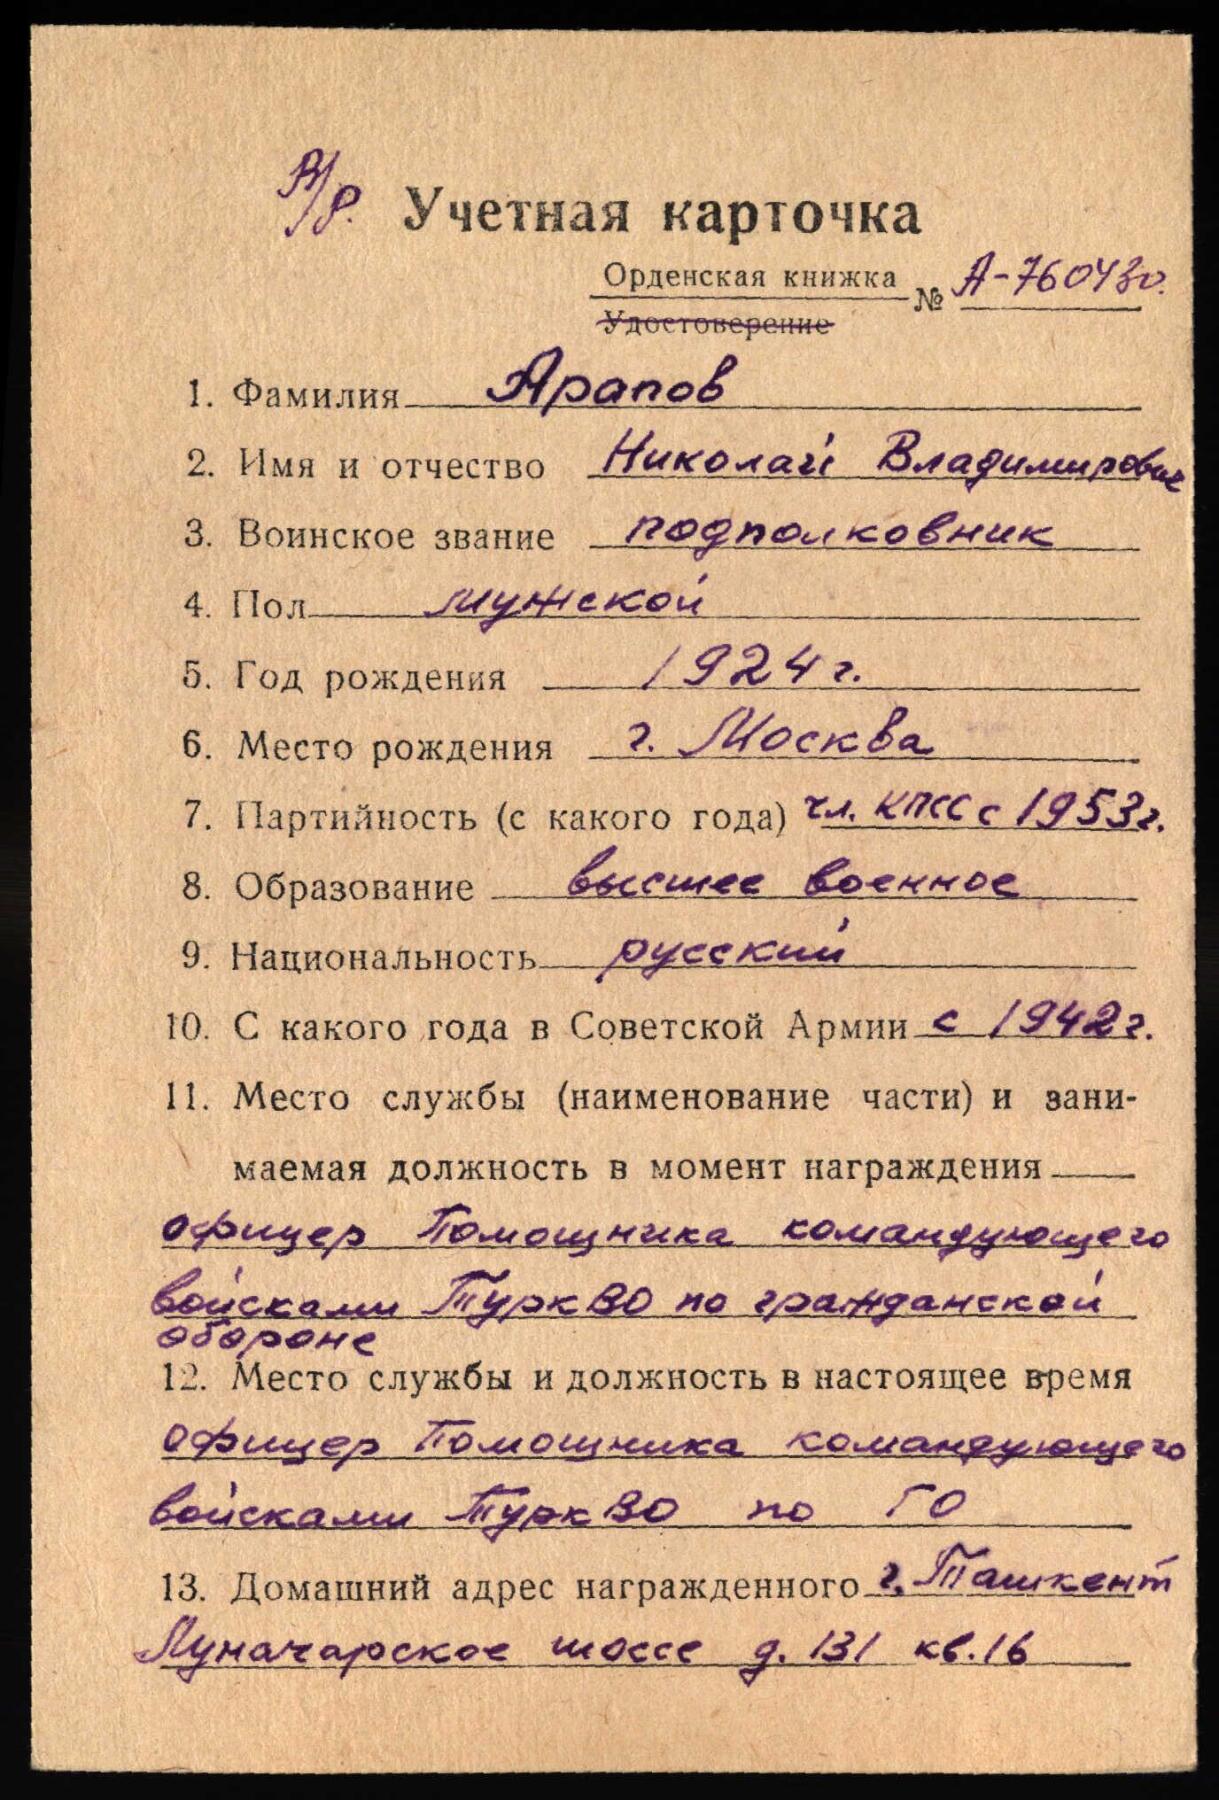 Учетная карточка
Орденская книжка № А-760430.
Удостоверение
1. Фамилия Арапов
2. Имя и отчество Николай Владимирович
3. Воинское звание подполковник
4. Пол мужской
5. Год рождения 1924 г.
6. Место рождения г. Москва
7. Партийность (с какого года) чл. КПСС с 1953 г.
8. Образование высшее военное
9. Национальность русский
10. С какого года в Советской Армии с 1942 г.
11. Место службы (наименование части) и зани-
маемая должность в момент награждения
офицер Помощника командующего
войсками ТуркВО по гражданской
обороне
12. Место службы и должность в настоящее время
офицер Помощника командующего
войсками ТуркВО по ГО
13. Домашний адрес награжденного г. Ташкент
Луначарское шоссе д. 131 кв. 16